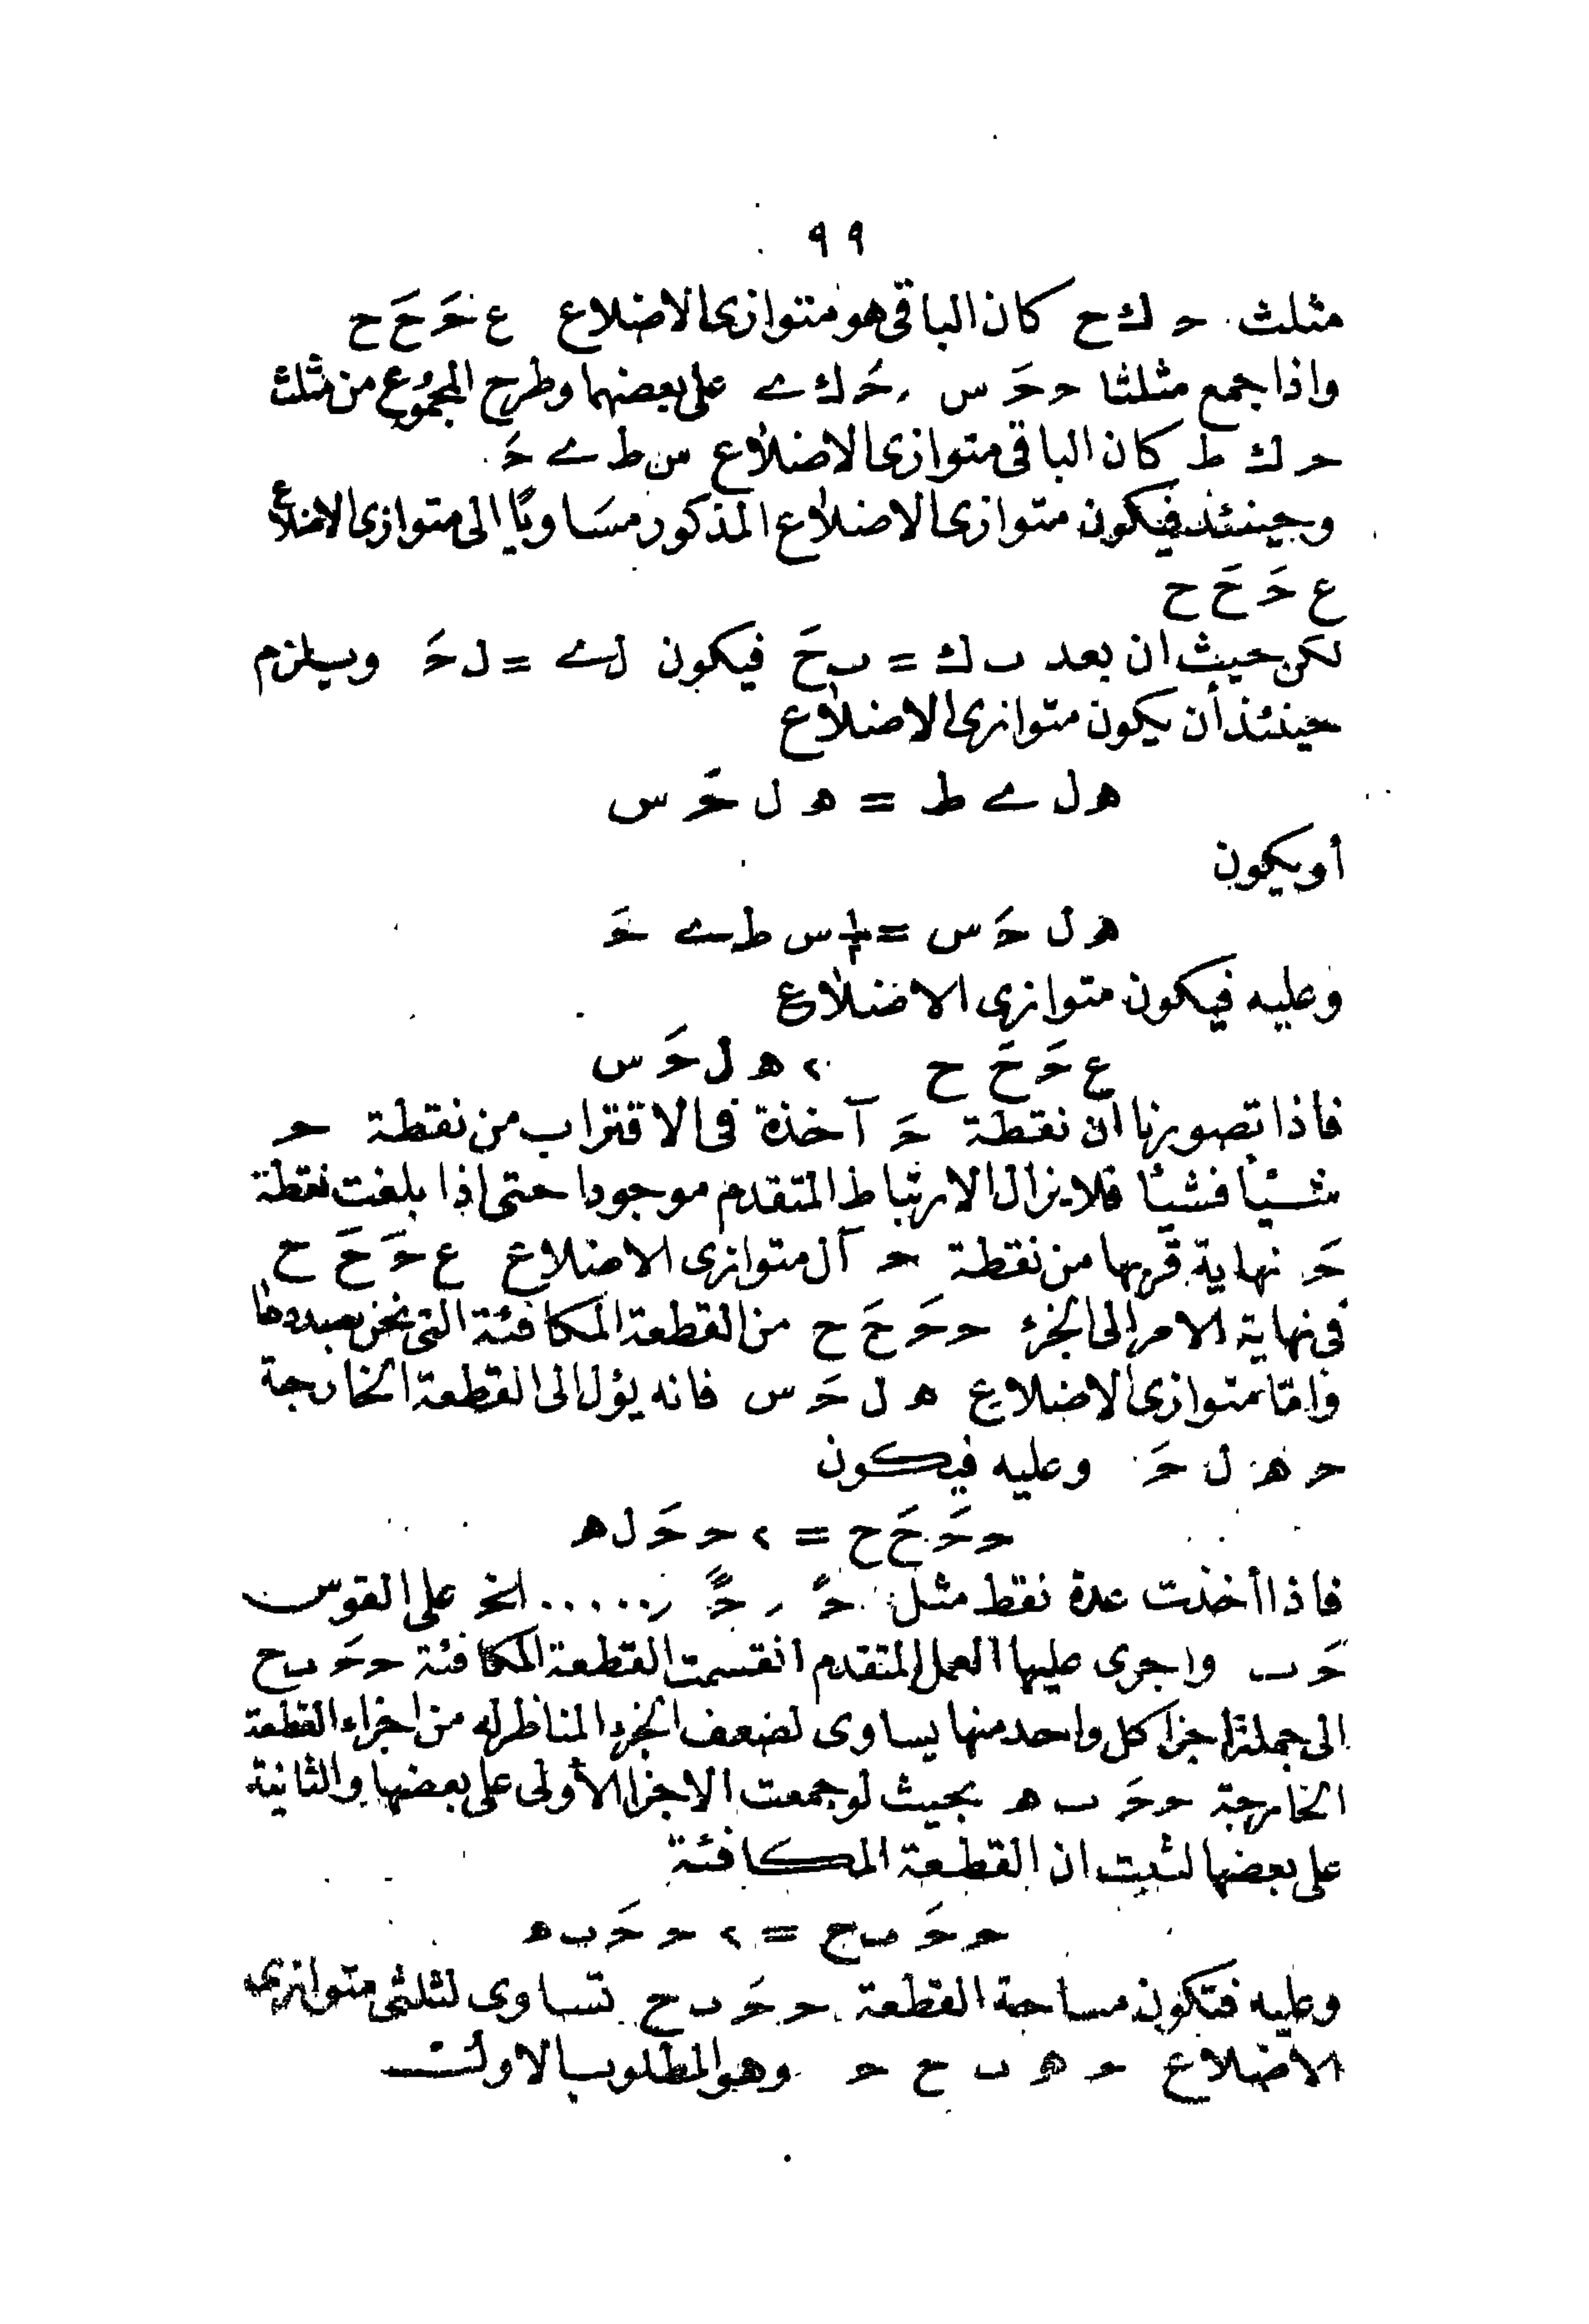 ٩٩
مثلث حـ ك ح كان الباقى هو متوازى الاضلاع ع حَـ حَ ح
واذا جمع مثلثا حـ حَـ س , حَـ ك ى على بعضهما وطرح المجموع من مثلث
حـ ك ط كان الباقى متوازى الاضلاع س ط ى حَـ
وحينئذ فيكون متوازى الاضلاع المذكور مساويًا الى متوازى الاضلاع
ع حَـ حَ ح
لكن حيث ان بعد ب ك = ب حَ فيكون ل ى = ل حَـ وسيلزم
حينئذ أن يكون متوازى الاضلاع
ه ل ى ط = ه ل حَـ س
أو يكون
ه ل حَـ س = ١/٢ س ط ى حَـ
وعليه فيكون متوازى الاضلاع
ع حَـ حَ ح ٢ ه ل حَـ س
فاذا تصورنا ان نقطة حَـ آخذة فى الاقتراب من نقطة حـ
شيئا فشيئا فلا يزال الارتباط المتقدم موجودا حتى اذا بلغت نقطة
حَـ نهاية قربها من نقطة حـ آل متوازى الاضلاع ع حَـ حَ ح
فى نهاية الامر الى الجزء حـ حَـ حَ ح من القطعة المكافئة التى نحن بصددها
وامّا متوازى الاضلاع ه ل حَـ س فانه يؤل الى القطعة الخارجة
حـ ه ل حَـ وعليه فيكون
حـ حَـ حَ ح = ٢ حـ حَـ ل ه
فاذا أخذت عدة نقط مثل حً , حً ,..... الخ على القوس
حَـ ب واجرى عليها العمل المتقدم انقسمت القطعة المكافئة حـ حَـ ب ح
الى جملة اجزا كل واحد منها يساوى لضعف الجزء المناظر له من اجزاء القطعة
الخارجة حـ حَـ ب ه بحيث لو جمعت الاجزا الأولى على بعضها والثانية
على بعضها لثبت ان القطعة المكافئة
حـ حَـ ب ح = ٢ حـ حَـ ب ه
وعليه فتكون مساحة القطعة حـ حَـ ب ح تساوى لثلثى متوازى
الاضلاع حـ ه ب ح حـ وهو المطلوب بالاولى